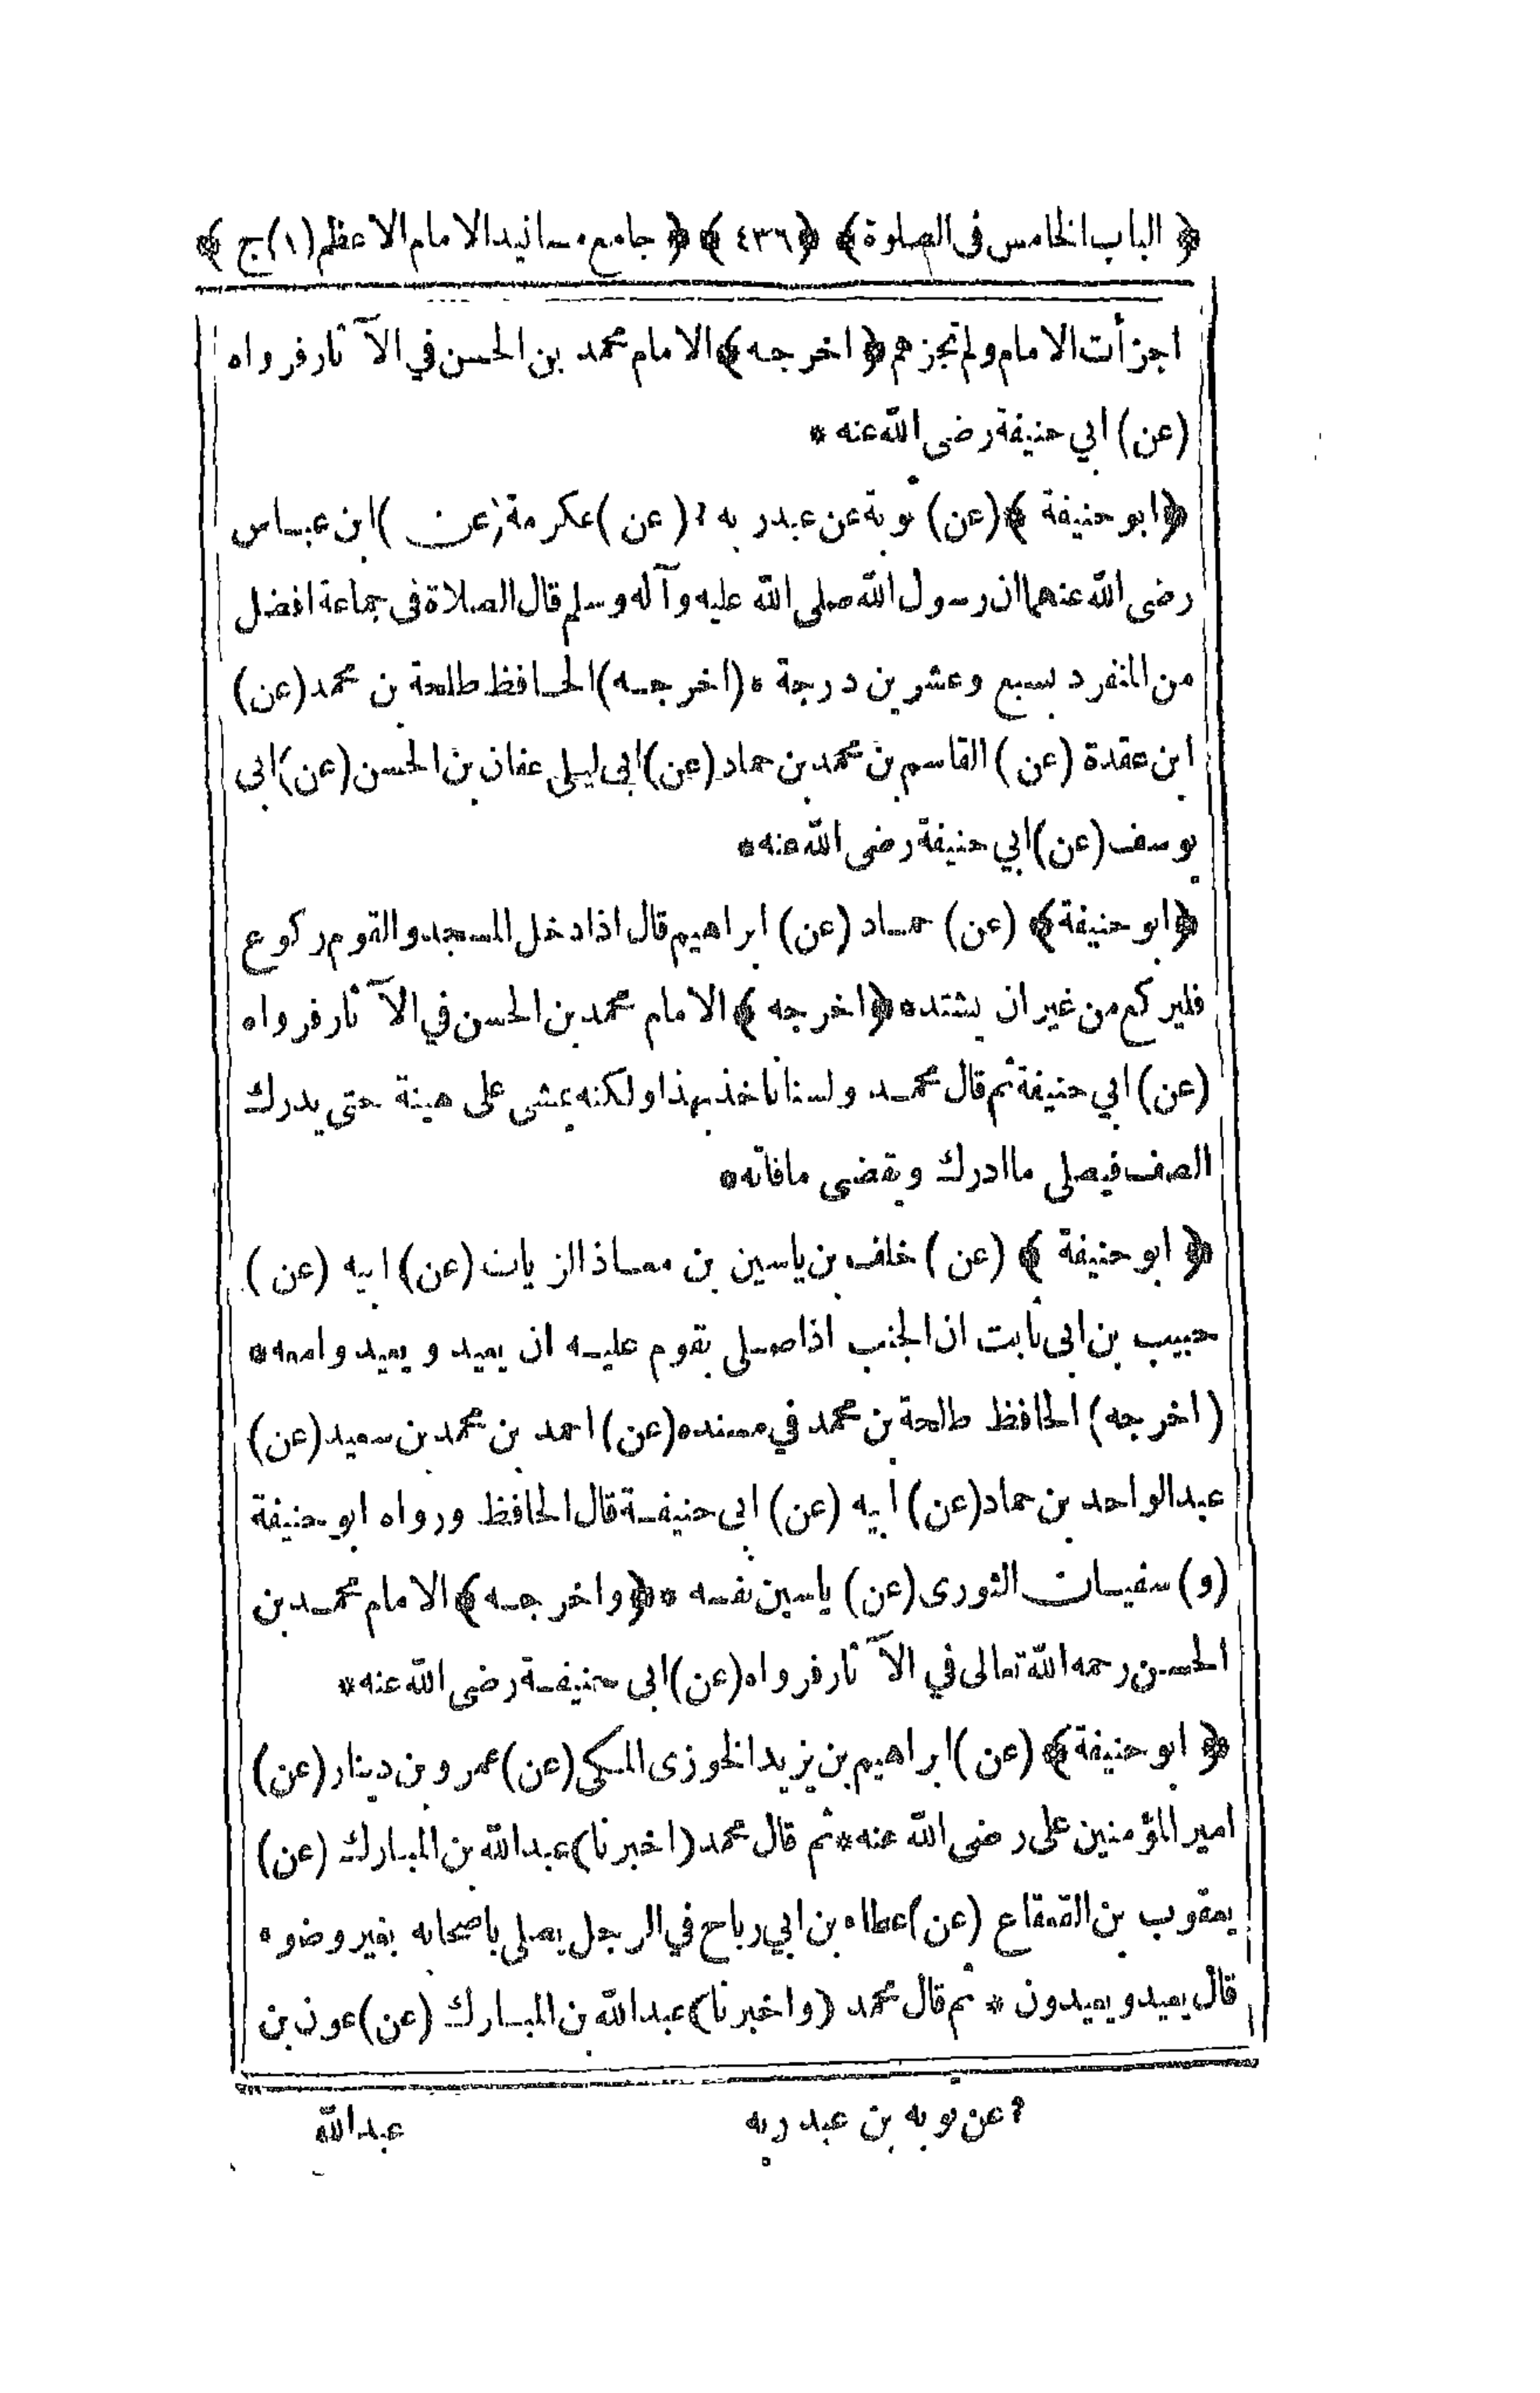 ﴿ الباب الخامس فى الصلوة ﴾ ﴿ ٤٣٦ ﴾ ﴿ جامع مسانيد الامام الاعظم (١) ج ﴾
اجزأت الامام ولم تجزهم ﴿ اخرجه ﴾ الامام محمد بن الحسن في الآثار فرواه
(عن) ابي حنيفة رضى الله عنه *
﴿ ابو حنيفة ﴾ (عن) توبة عن عبد ربه ? (عن) عكرمة (عن) ابن عباس
رضى الله عنهما ان رسول الله صلى الله عليه وآله وسلم قال الصلاة فى جماعة افضل
من المنفرد بسبع وعشرين درجة * (اخرجه) الحافظ طلحة بن محمد (عن)
ابن عقدة (عن) القاسم بن محمد بن حماد (عن) ابى ليلى عفان بن الحسن (عن) ابى
يوسف (عن) ابي حنيفة رضى الله عنه *
﴿ ابو حنيفة ﴾ (عن) حماد (عن) ابراهيم قال اذا دخل المسجد والقوم ركوع
فليركع من غير ان يشتد * ﴿ اخرجه ﴾ الامام محمد بن الحسن في الآثار فرواه
(عن) ابي حنيفة ثم قال محمد ولسنا ناخذ بهذا ولكنه يمشى على هينة حتى يدرك
الصف فيصلى ما ادرك ويقضى ما فاته *
﴿ ابو حنيفة ﴾ (عن) خلف بن ياسين بن معاذ الزيات (عن) ابيه (عن)
حبيب بن ابى ثابت ان الجنب اذا صلى بقوم عليه ان يعيد ويعيدوا معه *
(اخرجه) الحافظ طلحة بن محمد في مسنده (عن) احمد بن محمد بن سعيد (عن)
عبد الواحد بن حماد (عن) أبيه (عن) ابى حنيفة قال الحافظ ورواه ابو حنيفة
(و) سفيان الثورى (عن) ياسين نفسه * ﴿ واخرجه ﴾ الامام محمد بن
الحسن رحمه الله تعالى في الآثار فرواه (عن) ابى حنيفة رضى الله عنه *
﴿ ابو حنيفة ﴾ (عن) ابراهيم بن يزيد الخوزى المكى (عن) عمرو بن دينار (عن)
امير المؤمنين على رضى الله عنه * ثم قال محمد (اخبرنا) عبد الله بن المبارك (عن)
يعقوب بن القعقاع (عن) عطاء بن ابي رباح في الرجل يصلى باصحابه بغير وضوء
قال يعيد ويعيدون * ثم قال محمد (واخبرنا) عبد الله بن المبارك (عن) عون بن
? عن توبه بن عبد ربه
عبد الله